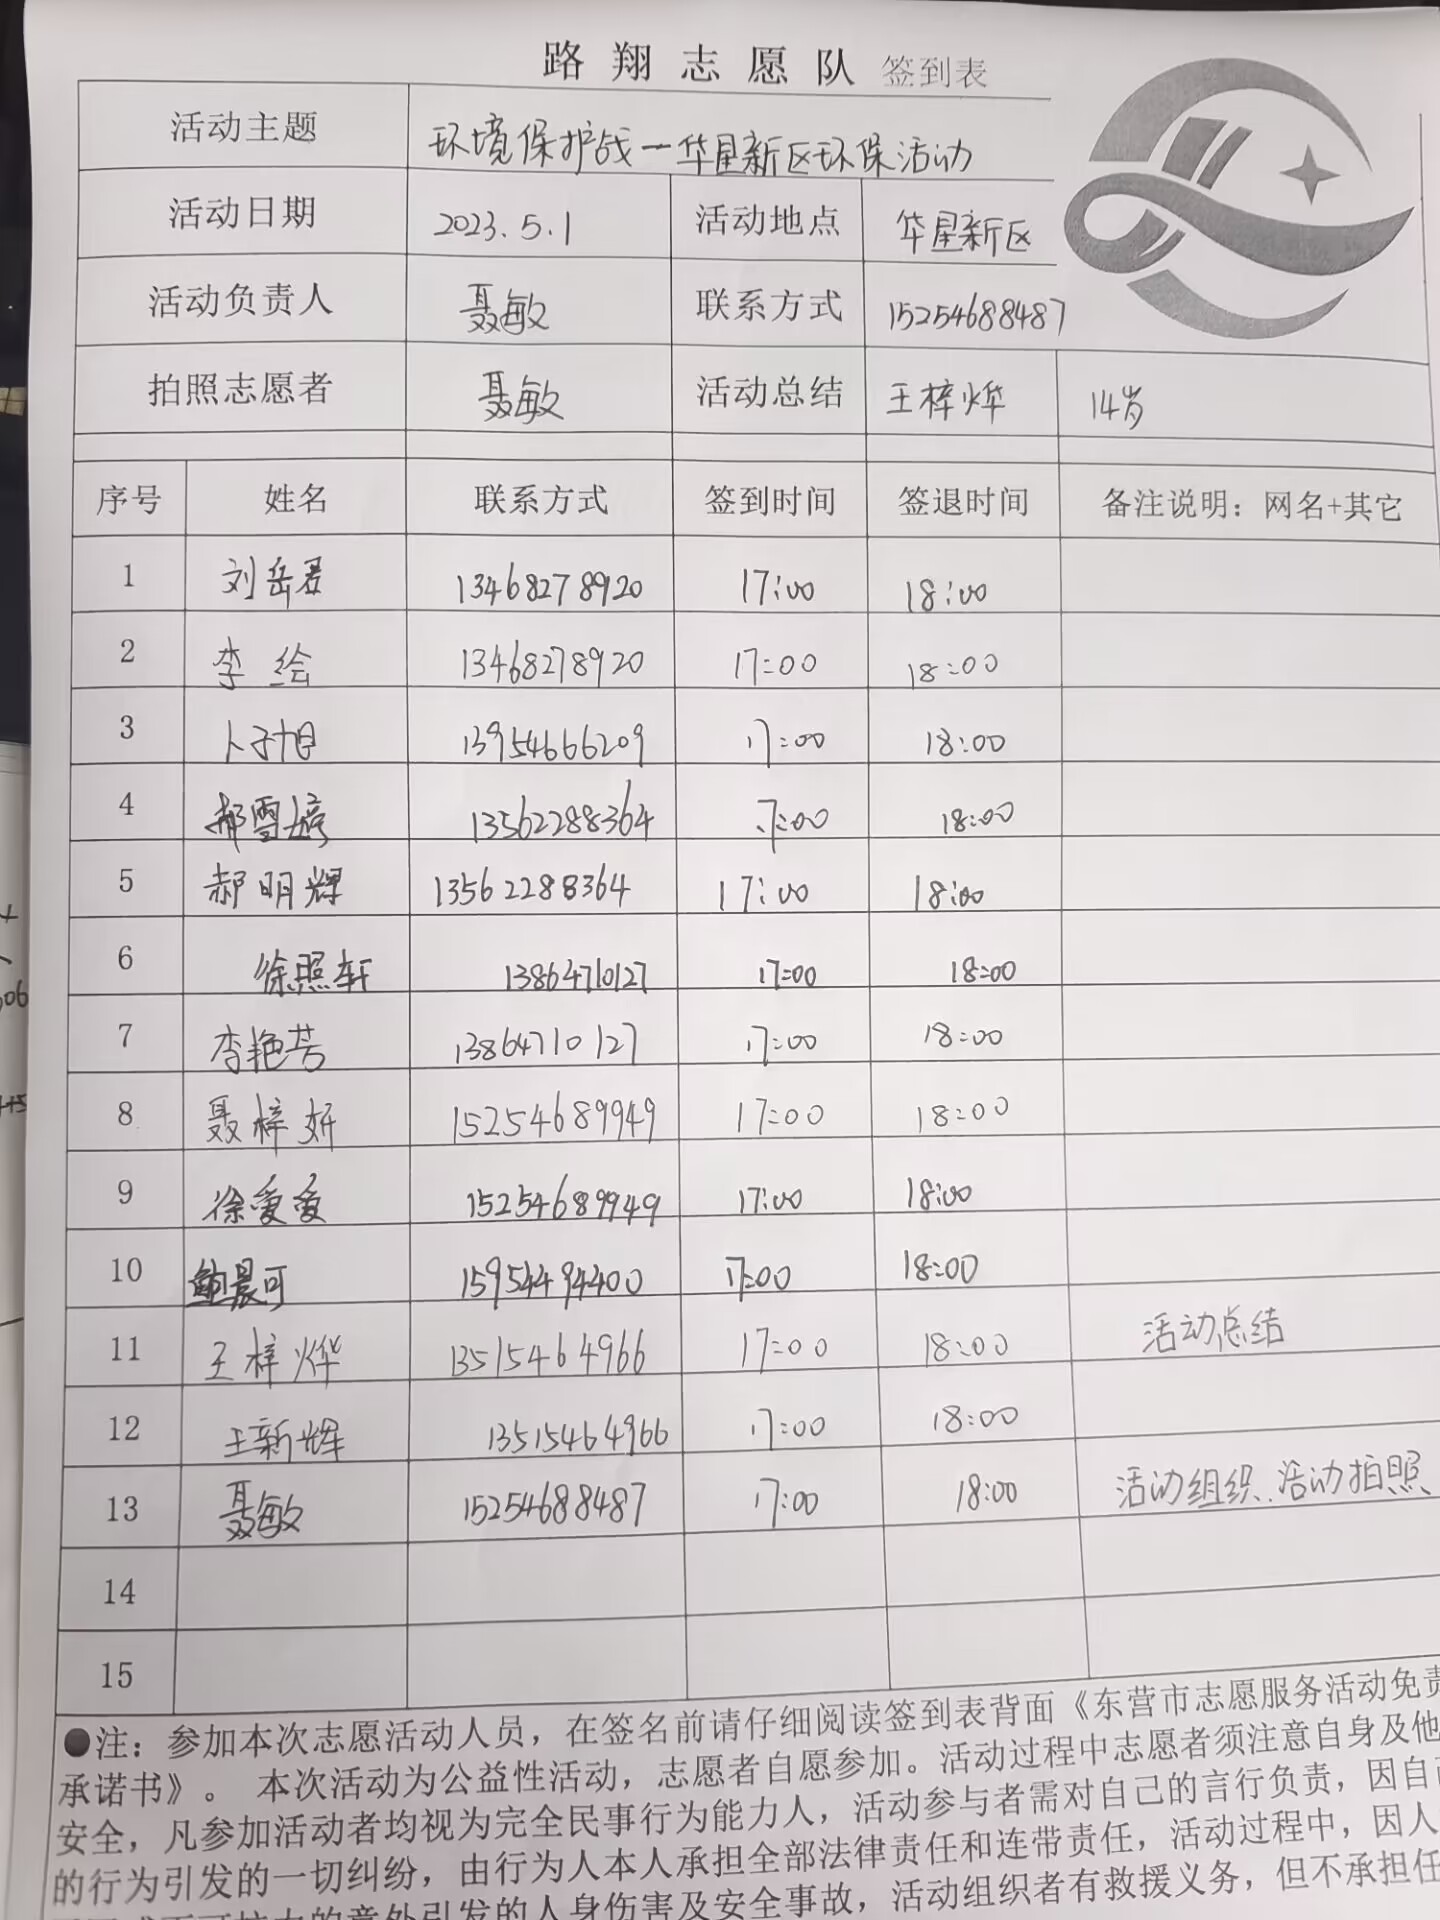 路翔志愿队 签到表
活动主题 环境保护战一华星新区环保活动
活动日期 2023.5.1 活动地点 华星新区
活动负责人 聂敏 联系方式 15254688487
拍照志愿者 聂敏 活动总结 王梓烨 14岁
序号 姓名 联系方式 签到时间 签退时间 备注说明：网名+其它
1 刘岳君 13468278920 17:00 18:00
2 李绘 13468278920 17:00 18:00
3 卜子旭 13954666209 17:00 18:00
4 郝雪婷 13562288364 17:00 18:00
5 郝明辉 13562288364 17:00 18:00
6 徐照轩 13864710127 17:00 18:00
7 李艳芳 13864710127 17:00 18:00
8 聂梓妍 15254689949 17:00 18:00
9 徐爱爱 15254689949 17:00 18:00
10 鲍晨可 15954494400 17:00 18:00
11 王梓烨 13515464966 17:00 18:00 活动总结
12 王新辉 13515464966 17:00 18:00
13 聂敏 15254688487 17:00 18:00 活动组织、活动拍照
14
15
●注：参加本次志愿活动人员，在签名前请仔细阅读签到表背面《东营市志愿服务活动免责
承诺书》。 本次活动为公益性活动，志愿者自愿参加。活动过程中志愿者须注意自身及他
安全，凡参加活动者均视为完全民事行为能力人，活动参与者需对自己的言行负责，因自己
的行为引发的一切纠纷，由行为人本人承担全部法律责任和连带责任，活动过程中，因人
的意外引发的人身伤害及安全事故，活动组织者有救援义务，但不承担任